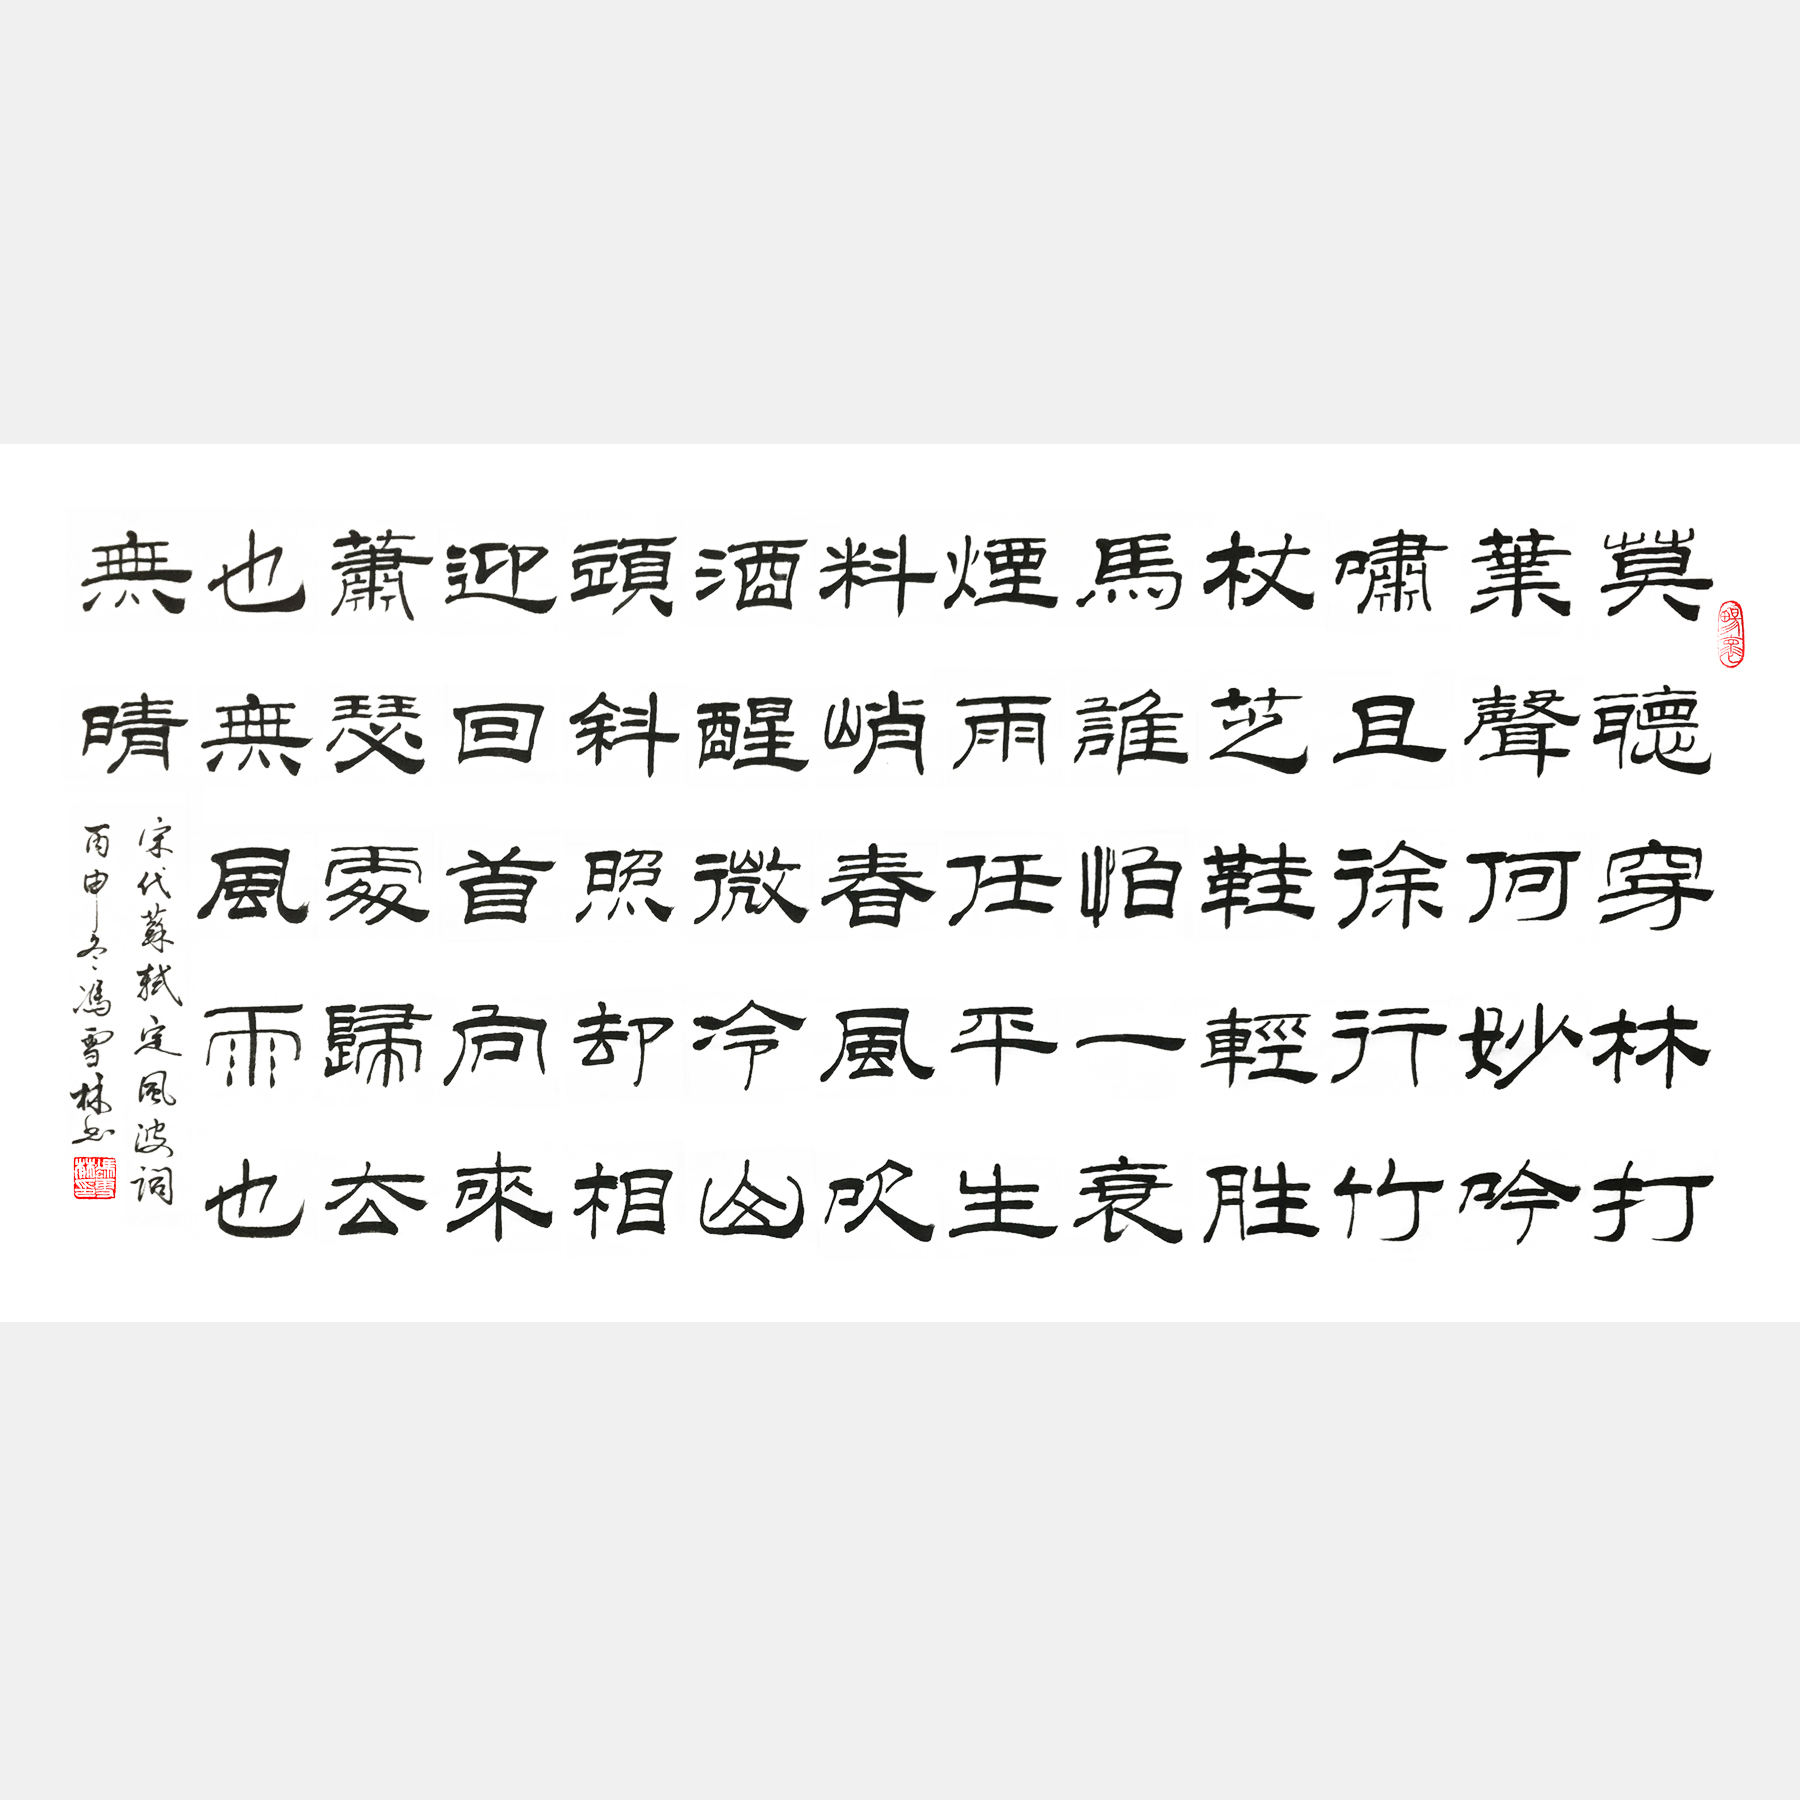 莫聽穿林打
葉聲何妙吟
嘯且徐行竹
杖芝鞋輕胜
馬誰怕一衰
煙雨任平生
料峭春風吹
酒醒微冷山
頭斜照却相
迎回首向來
蕭瑟處歸去
也無風雨也
無晴
宋代蘇軾定風波詞
丙申冬馮雪林书